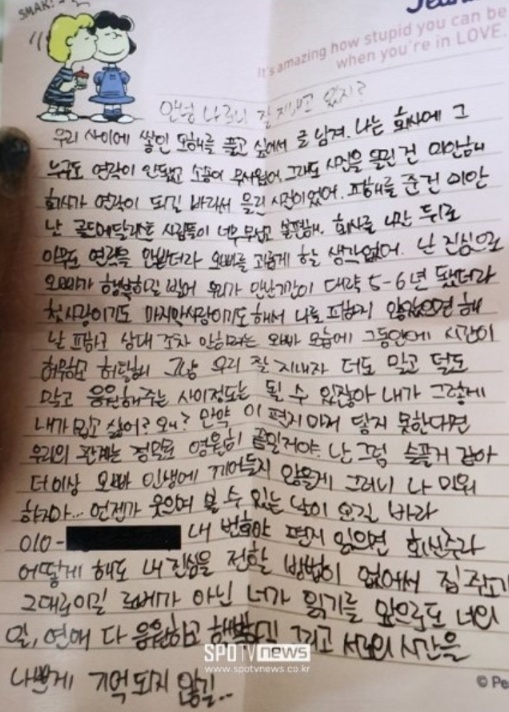 SMAK!
It's amazing how stupid you can be
when you're in LOVE.
안녕 나로니 잘 지내고 있지?
우리 사이에 쌓인 오해를 풀고 싶어서 글 남겨. 나는 회사에 그
누구도 연락이 안됐고 소송이 무서웠어. 그래도 사진을 올린 건 미안해
회사가 연락이 되길 바라서 올린 사진이었어. 피해를 준건 미안
난 골드메달리스트 사람들이 너무 무섭고 불편해. 회사를 나간 뒤로
아무도 연락을 안받더라 오빠를 괴롭게 할 생각없어. 난 진심으로
오빠가 행복하길 빌어 우리가 만난기간이 대략 5-6년 됐더라
첫사랑이기도 마지막사랑이기도 해서 나를 피하지 않았으면 해
날 피하고 상대 조차 안하려는 오빠 모습에 그동안에 시간이
허무하고 허탈해 그냥 우리 잘 지내자 더도 말고 덜도
말고 응원해주는 사이정도는 될 수 있잖아 내가 그렇게
내가 밉고 싫어? 왜? 만약 이 편지마저 닿지 못한다면
우리의 관계는 정말로 영원히 끝일거야. 난 그럼 슬플거 같아
더 이상 오빠 인생에 끼어들지 않을게 그러니 나 미워
하지마... 언젠가 웃으며 볼 수 있는 날이 오길 바라
010- 내 번호야 편지 읽으면 회신주라
어떻게 해도 내 진심을 전할 방법이 없어서 집주소가
그대로이길 로베가 아닌 너가 읽기를 앞으로도 너의
일, 연애 다 응원하고 행복하길 그리고 서로의 시간을
나쁘게 기억되지 않길..
SPOTVnews
www.spotvnews.co.kr
© Pe